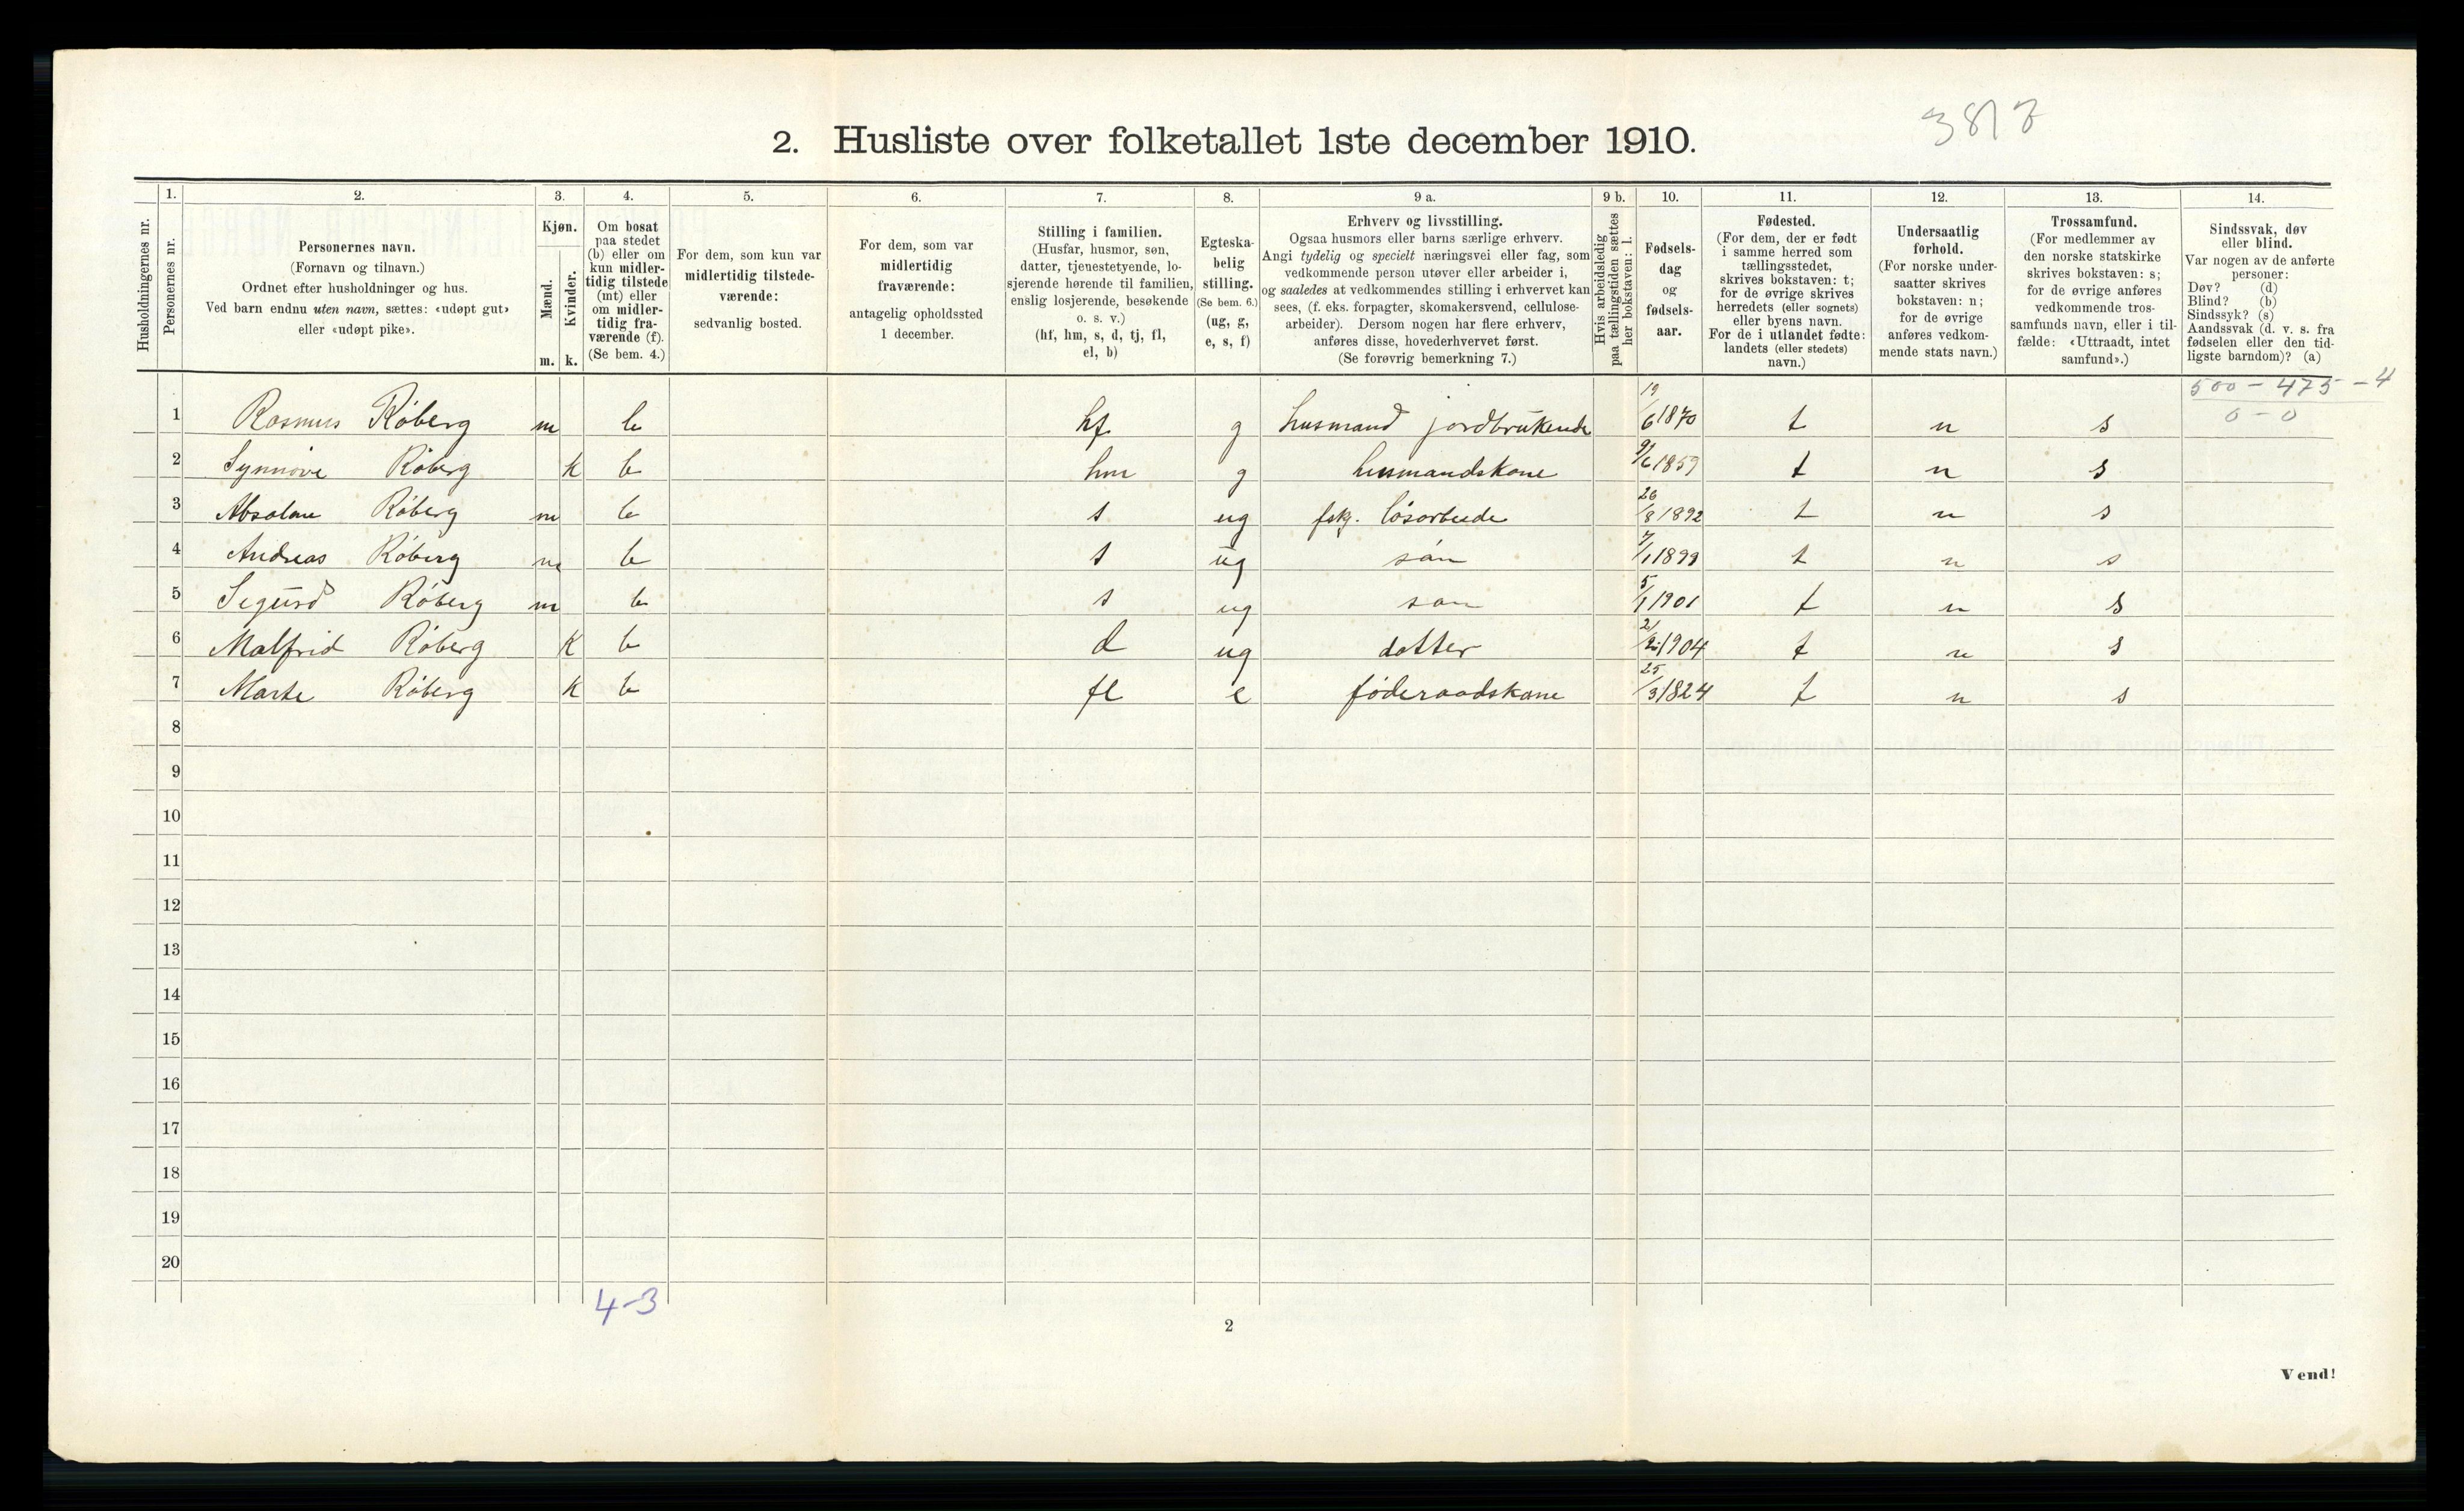 3817
2. Husliste over folketallet 1ste december 1910.
Husholdningernes nr.
1. Personernes nr.
2. Personernes navn. (Fornavn og tilnavn.) Ordnet efter husholdninger og hus. Ved barn endnu uten navn, sættes: «udøpt gut» eller «udøpt pike».
3. Kjøn. Mænd. m. Kvinder. k.
4. Om bosat paa stedet (b) eller om kun midler-tidig tilstede (mt) eller om midler-tidig fra-værende (f). (Se bem. 4.)
5. For dem, som kun var midlertidig tilstede-værende: sedvanlig bosted.
6. For dem, som var midlertidig fraværende: antagelig opholdssted 1 december.
7. Stilling i familien. (Husfar, husmor, søn, datter, tjenestetyende, lo-sjerende hørende til familien, enslig losjerende, besøkende o. s. v.) (hf, hm, s, d, tj, fl, el, b)
8. Egteska-belig stilling. (Se bem. 6.) (ug, g, e, s, f)
9 a. Erhverv og livsstilling. Ogsaa husmors eller barns særlige erhverv. Angi tydelig og specielt næringsvei eller fag, som vedkommende person utøver eller arbeider i, og saaledes at vedkommendes stilling i erhvervet kan sees, (f. eks. forpagter, skomakersvend, cellulose-arbeider). Dersom nogen har flere erhverv, anføres disse, hovederhvervet først. (Se forøvrig bemerkning 7.)
9 b. Hvis arbeidsledig paa tællingstiden sættes her bokstaven: l.
10. Fødsels-dag og fødsels-aar.
11. Fødested. (For dem, der er født i samme herred som tællingsstedet, skrives bokstaven: t; for de øvrige skrives herredets (eller sognets) eller byens navn. For de i utlandet fødte: landets (eller stedets) navn.)
12. Undersaatlig forhold. (For norske under-saatter skrives bokstaven: n; for de øvrige anføres vedkom-mende stats navn.)
13. Trossamfund. (For medlemmer av den norske statskirke skrives bokstaven: s; for de øvrige anføres vedkommende tros-samfunds navn, eller i til-fælde: «Uttraadt, intet samfund».)
14. Sindssvak, døv eller blind. Var nogen av de anførte personer: Døv? (d) Blind? (b) Sindssyk? (s) Aandssvak (d. v. s. fra fødselen eller den tid-ligste barndom)? (a)
500 - 475 - 4
0 - 0
1 Rasmus Røberg m b hf g husmand jordbrukende 19/6 1870 t n s
2 Synnøve Røberg k b hm g husmandskone 9/6 1859 t n s
3 Absalon Røberg m b s ug fskj. løsarbeide 26/8 1892 t n s
4 Andreas Røberg m b s ug søn 7/1 1899 t n s
5 Sigurd Røberg m b s ug søn 5/1 1901 t n s
6 Malfrid Røberg k b d ug datter 21/2 1904 t n s
7 Marte Røberg k b fl e føderaadskone 25/3 1824 t n s
8
9
10
11
12
13
14
15
16
17
18
19
20
4-3
2
Vend!